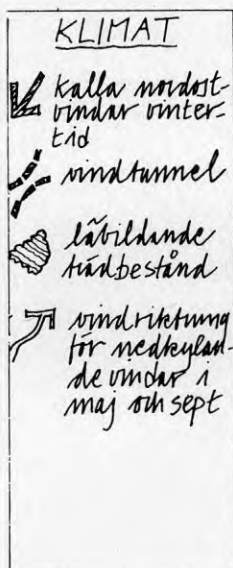 KLIMAT
kalla nordost-
vindar vinter-
tid
vindtunnel
läbildande
trädbestånd
vindriktning
för nedkylan-
de vindar i
maj och sept